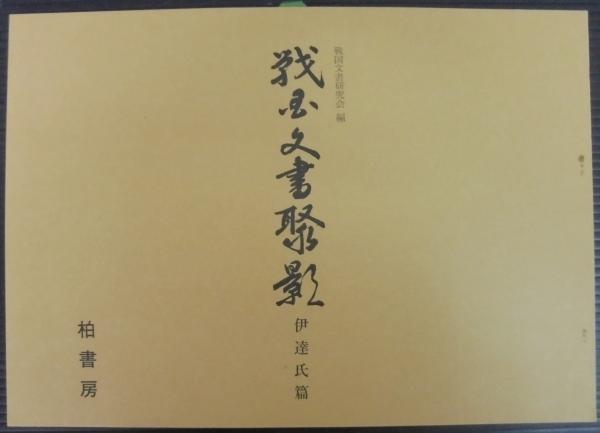 戦国文書研究会 編
戦国文書聚影
伊達氏篇
柏書房